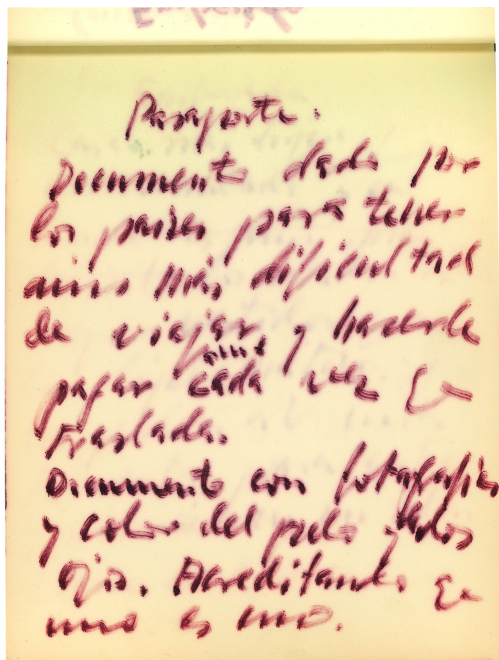 Pasaporte.
Documento dado por
los paises para tener
aun más dificultad
de viajar y hacerle
pagar cada vez qe
traslada.
Documento con fotografia
y color del pelo y de los
ojos. Acreditando qe
uno es uno.